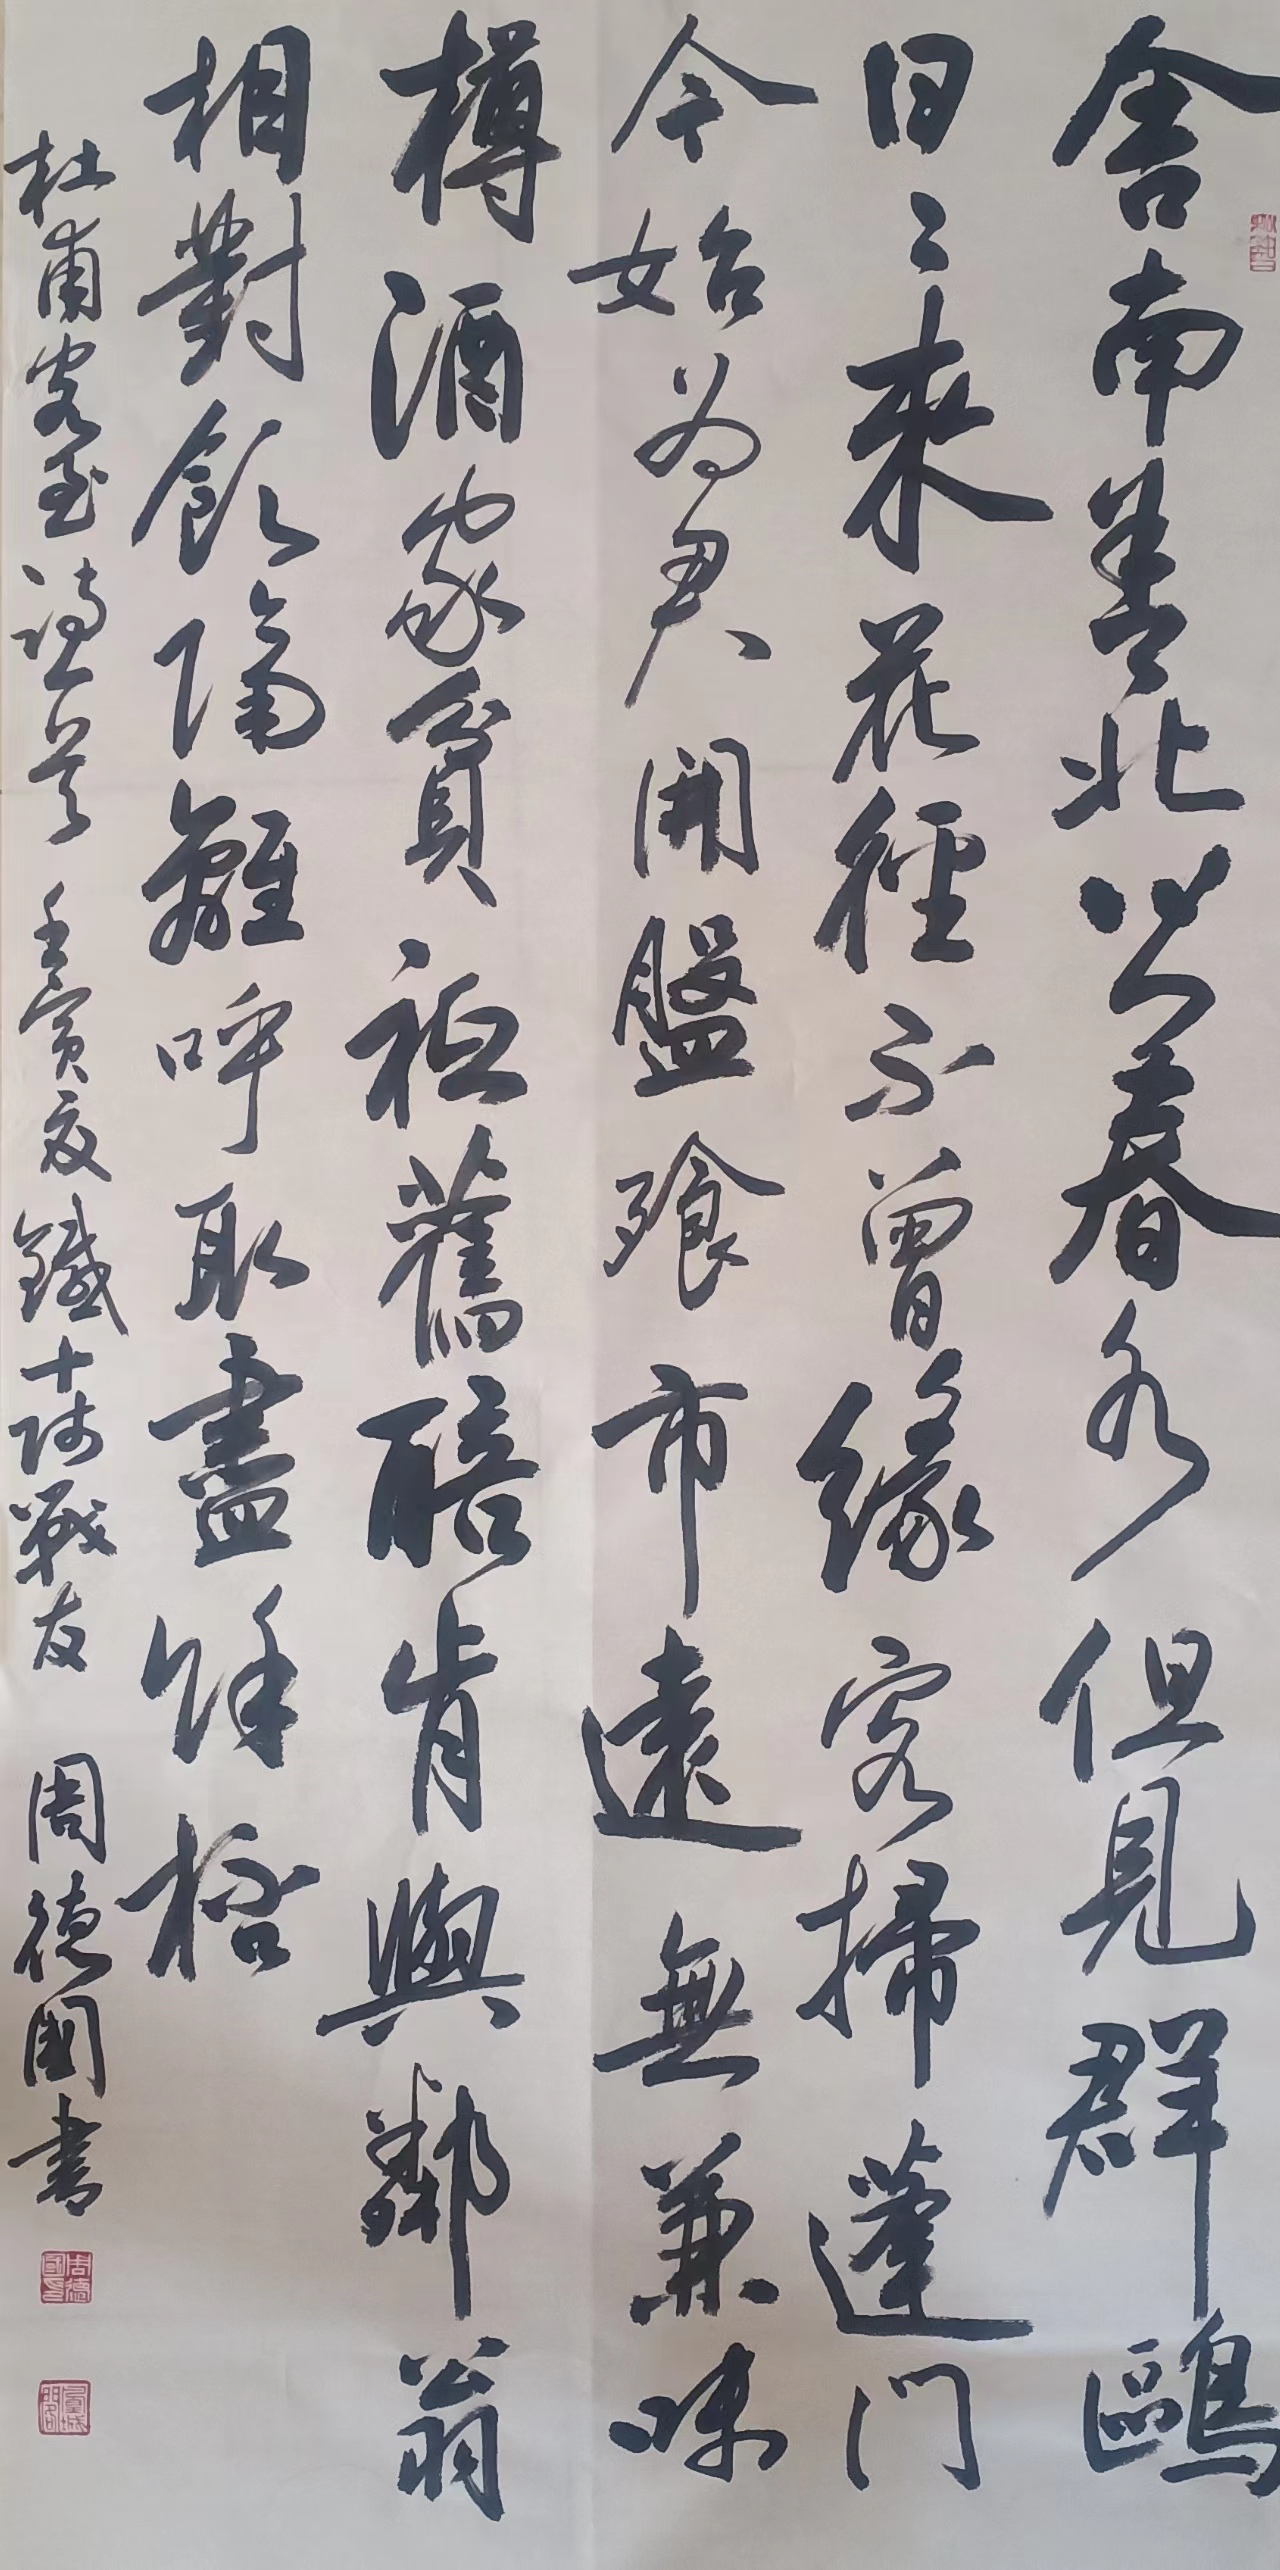 舍南善北皆春水但見群鷗
日々來花徑不曾緣客掃蓬門
今始為君開盤飧市遠無兼味
樽酒家貧祗舊醅肯與鄰翁
相對飲隔籬呼取盡餘桮
杜甫客至詩一首 壬寅夏 鐵十師戰友 周德國書
周德國印